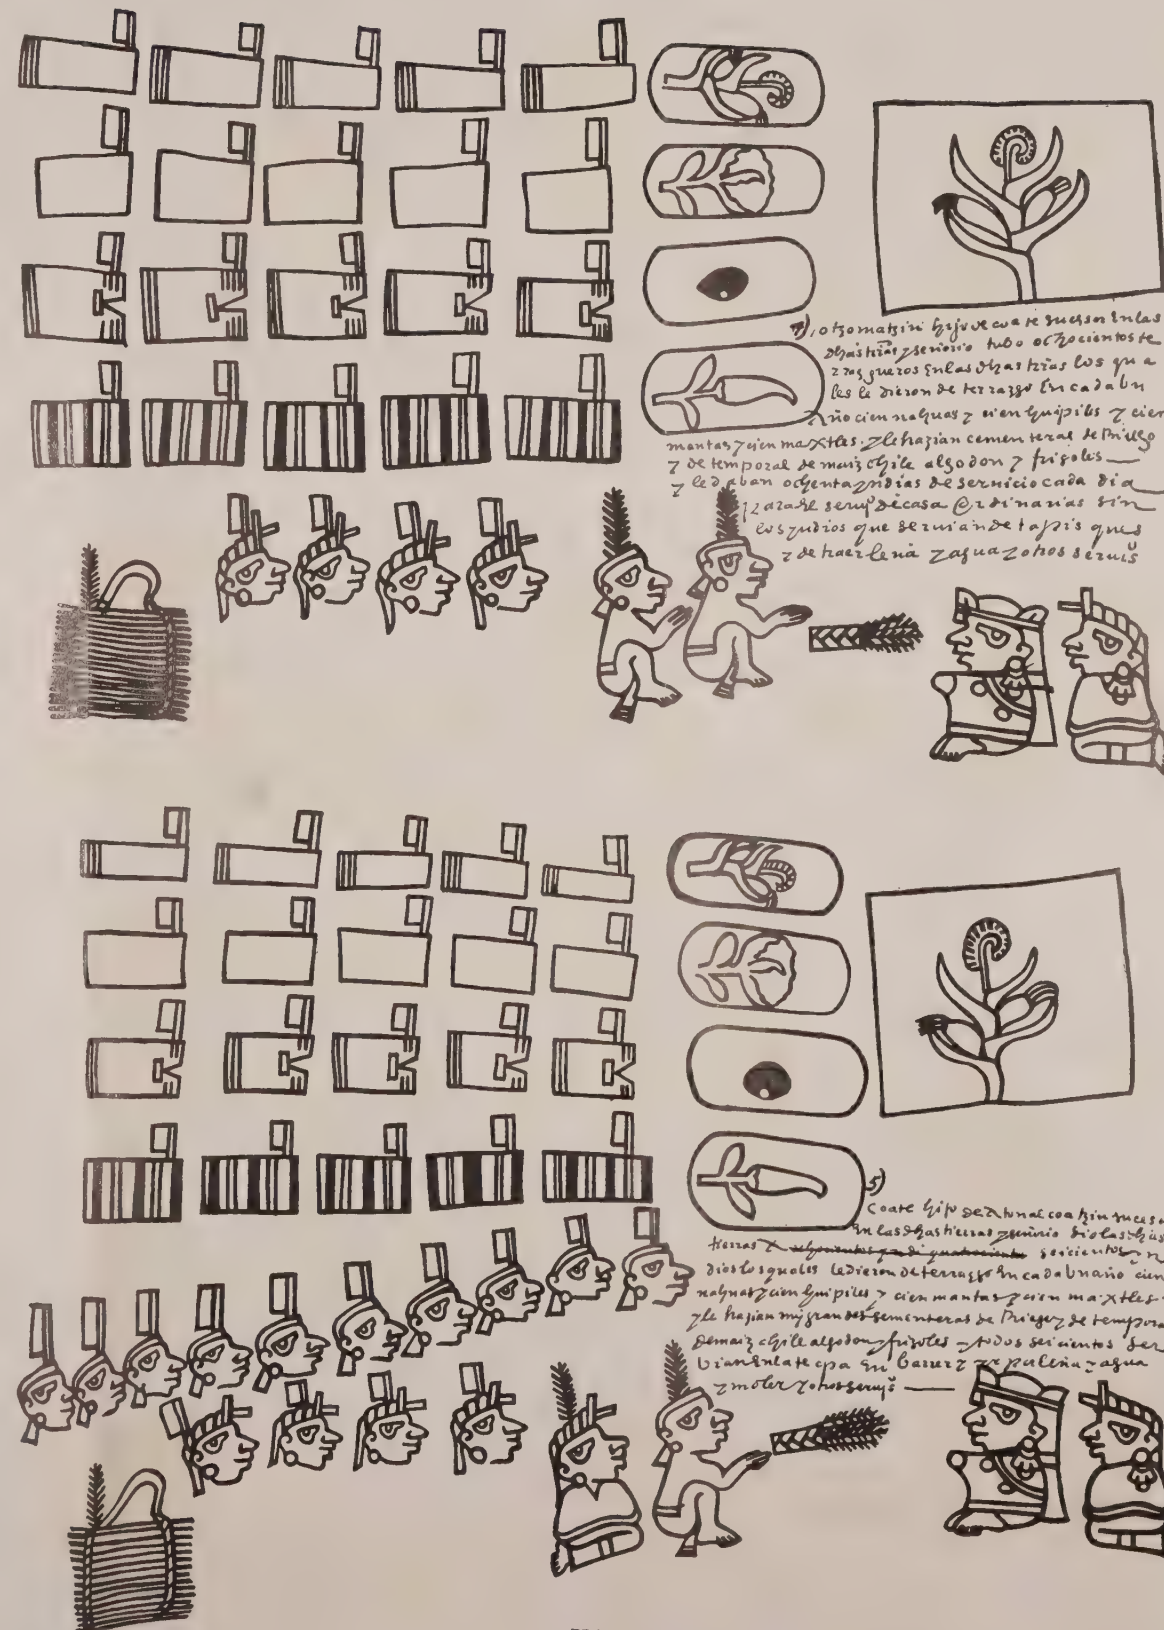 otzomatzin hijo de coate suces​or en las
dhas trãs y señorio tubo ochocientos te
rrasgueros en las dhas trãs los qua
les le dieron de terrazgo En cada un
año cien nahuas y cien huipiles y cien
mantas y cien maxtles. y le hazian cementeras de Rriego
y de temporal de maiz chile algodon y frisoles
y le daban ochenta yndias de servicio cada dia
de casa ordinarias sin
los yndios que servian de tapisques
y de traer leña y agua y otros serui͂s
5)
Coate hijo de Atonal coatzin suces
En las dhas tierras y señorio dio las dhas
tierras A seicientos
dios los quales le dieron de terrazgo En cada un año cien
nahuas y cien huipiles y cien mantas y cien maxtles
y le hazian muy grandes sementeras de Rriego y de tempora
de maiz chile algodon y frisoles y todos seicientos ser
bian En la tecpa En barrer leña y agua
y moler y otros serui͂s